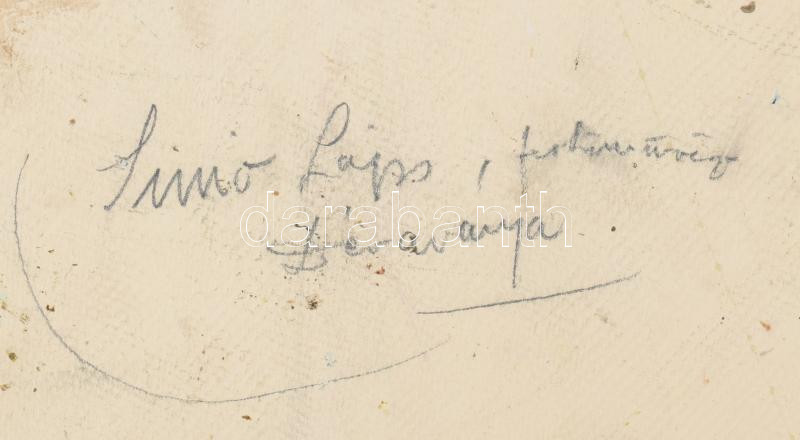 Simó Lajos, festőművész
Dévaványa
darabanth